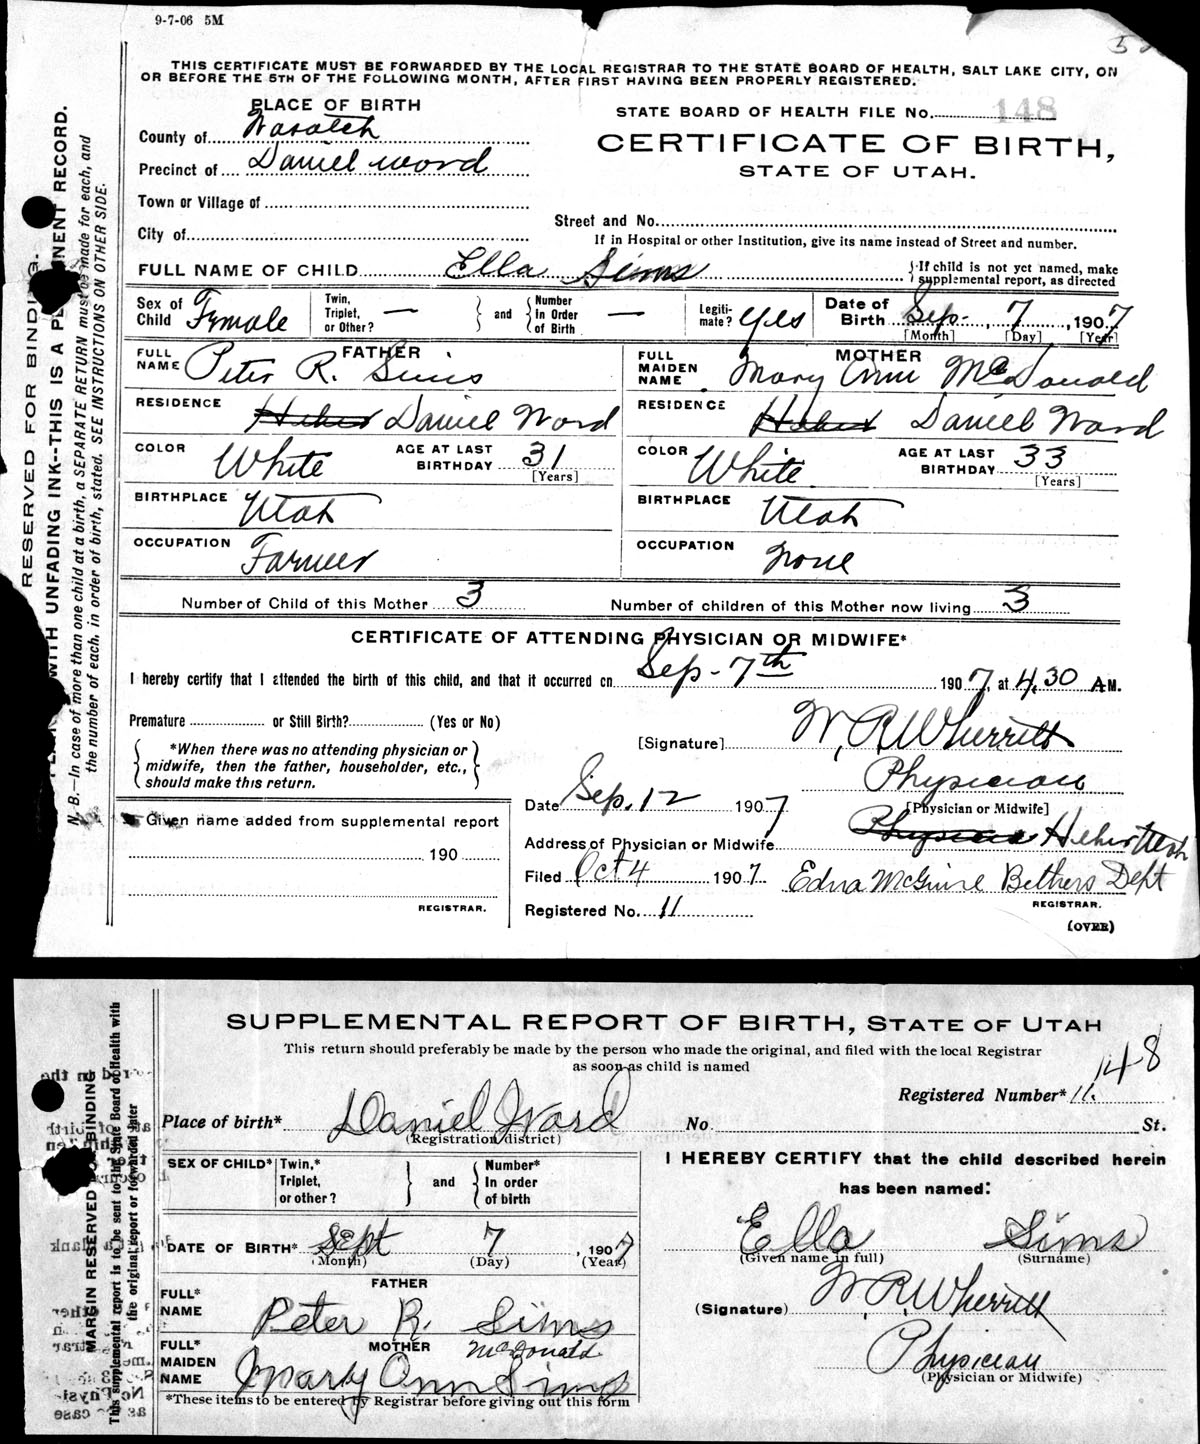 9-7-06 5M
THIS CERTIFICATE MUST BE FORWARDED BY THE LOCAL REGISTRAR TO THE STATE BOARD OF HEALTH, SALT LAKE CITY, ON
OR BEFORE THE 5TH OF THE FOLLOWING MONTH, AFTER FIRST HAVING BEEN PROPERLY REGISTERED.
PLACE OF BIRTH
STATE BOARD OF HEALTH FILE No. 148
County of Wasatch
CERTIFICATE OF BIRTH,
Precinct of Daniel ward
STATE OF UTAH.
Town or Village of
Street and No.
City of
If in Hospital or other Institution, give its name instead of Street and number.
FULL NAME OF CHILD Ella Sims
If child is not yet named, make
supplemental report, as directed
Sex of Child Female
Twin, Triplet, or Other? —
and
Number In Order of Birth —
Legiti- mate? yes
Date of Birth Sep- 7, 1907
[Month] [Day] [Year]
FATHER
FULL NAME Peter R. Sims
MOTHER
FULL MAIDEN NAME Mary Ann McDonald
RESIDENCE Heber Daniel Ward
RESIDENCE Heber Daniel Ward
COLOR White
AGE AT LAST BIRTHDAY 31
[Years]
COLOR White
AGE AT LAST BIRTHDAY 33
[Years]
BIRTHPLACE Utah
BIRTHPLACE Utah
OCCUPATION Farmer
OCCUPATION None
Number of Child of this Mother 3
Number of children of this Mother now living 3
CERTIFICATE OF ATTENDING PHYSICIAN OR MIDWIFE*
I hereby certify that I attended the birth of this child, and that it occurred on Sep - 7th 1907, at 4,30 A M.
Premature or Still Birth? (Yes or No)
*When there was no attending physician or
midwife, then the father, householder, etc.,
should make this return.
[Signature] W. R. Wherritt
Physician
[Physician or Midwife]
Date Sep. 12 1907
Given name added from supplemental report
190
REGISTRAR.
Address of Physician or Midwife Physician Heber Utah
Filed Oct 4 1907. Edna McGuire Bethers Dept
REGISTRAR.
Registered No. 11
(OVER)
RESERVED FOR BINDING.
WITH UNFADING INK--THIS IS A PERMANENT RECORD.
N. B.—In case of more than one child at a birth, a SEPARATE RETURN must be made for each, and
the number of each, in order of birth, stated. SEE INSTRUCTIONS ON OTHER SIDE.
SUPPLEMENTAL REPORT OF BIRTH, STATE OF UTAH
This return should preferably be made by the person who made the original, and filed with the local Registrar
as soon as child is named
148
Registered Number* 11.
Place of birth* Daniel Ward
(Registration district)
No. St.
SEX OF CHILD*
Twin,* Triplet, or other?
and
Number* In order of birth
I HEREBY CERTIFY that the child described herein
has been named:
DATE OF BIRTH* Sept 7, 1907
(Month) (Day) (Year)
Ella Sims
(Given name in full) (Surname)
FATHER
FULL* NAME Peter R. Sims
(Signature) W. R. Wherritt
MOTHER
McDonald
FULL* MAIDEN NAME Mary Ann Sims
Physician
(Physician or Midwife)
*These items to be entered by Registrar before giving out this form
MARGIN RESERVED FOR BINDING
This supplemental report is to be sent to the State Board of Health with
the original report or forwarded later